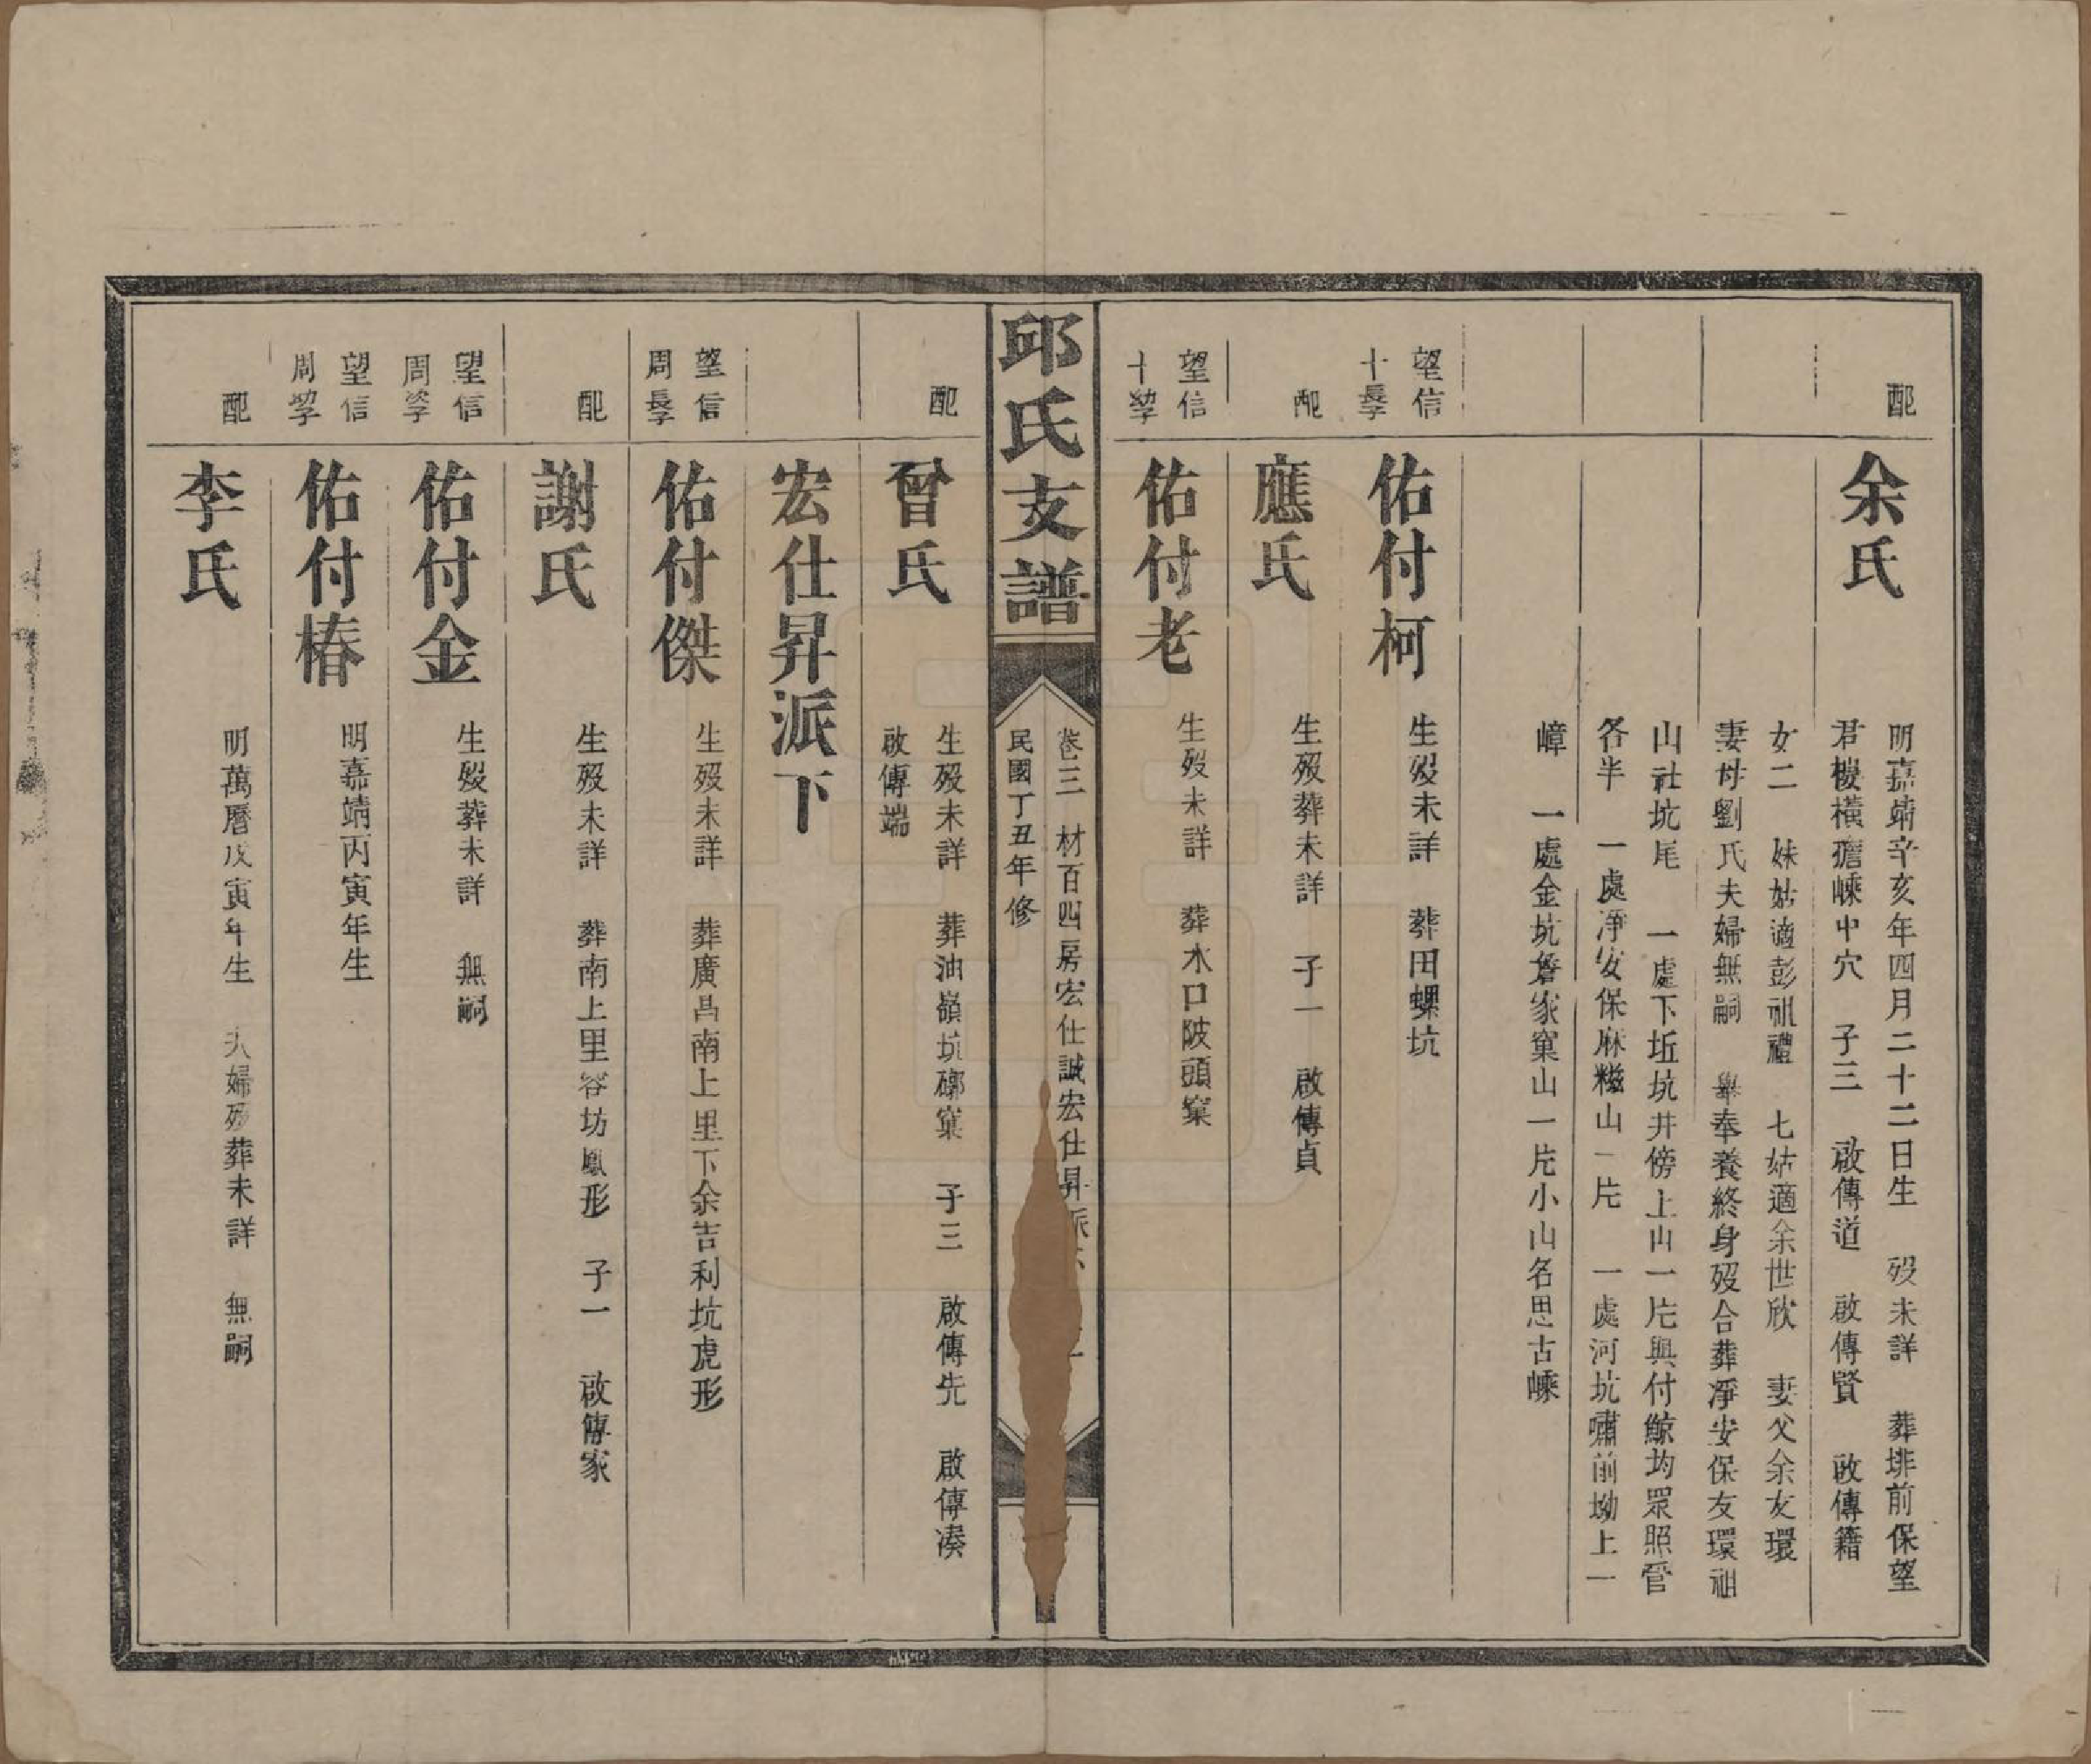 配
余氏
明嘉靖辛亥年四月二十二日生 歿未詳 葬排前保望
君樓橫擔嵊中穴 子三 啟傳道 啟傳賢 啟傳籍
女二 妹姑適彭祖禮 七姑適余世欣 妻父余友環
妻母劉氏夫婦無嗣 舉奉養終身歿合葬凈安保友環祖
山社坑尾 一處下坵坑井傍上山一片與付鯨均眾照管
各半 一處凈安保麻糍山一片 一處河坑嘯前坳上一
嶂 一處金坑詹家窠山一片小山名思古嵊
望信
十長子
佑付柯
生歿未詳 葬田螺坑
配
應氏
生歿葬未詳 子一 啟傳貞
望信
十幼子
佑付老
生歿未詳 葬水口陂頭窠
邱氏支譜
卷三 材百四房宏仕誠宏仕昇派
民國丁丑年修
配
曾氏
生歿未詳 葬油嶺坑磜窠 子三 啟傳先 啟傳湊
啟傳端
宏仕昇派下
望信
周長子
佑付傑
生歿未詳 葬廣昌南上里下余吉利坑虎形
配
謝氏
生歿未詳 葬南上里容坊鳳形 子一 啟傳家
望信
周次子
佑付金
生歿葬未詳 無嗣
望信
周幼子
佑付椿
明嘉靖丙寅年生
配
李氏
明萬曆戊寅年生 夫婦歿葬未詳 無嗣